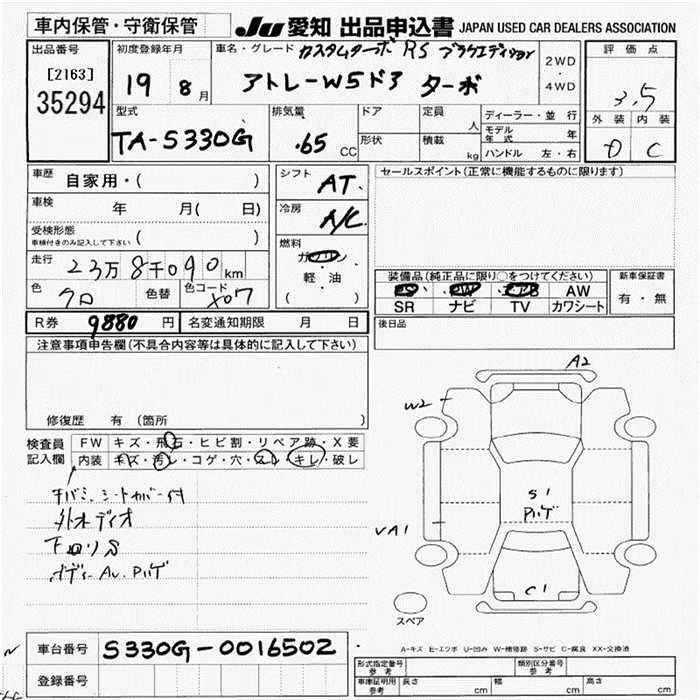 車内保管・守衛保管
JU 愛知 出品申込書 JAPAN USED CAR DEALERS ASSOCIATION
出品番号
[2163]
35294
初度登録年月
19 8月
車名・グレード カスタムターボ RS ブラックエディション
アトレーW5ドア ターボ
2WD
・
4WD
評価点
3.5
外装 内装
D C
型式
TA-S330G
排気量
.65 CC
ドア
形状
定員
人
積載
kg
ディーラー・並行
モデル年式 年
ハンドル 左・右
車歴
自家用・( )
車検
年 月( 日)
受検形態
車検付きのみ記入して下さい ( )
走行
23万8千090km
色
クロ
色替
色コード
X07
シフト
AT.
冷房
A/C
燃料
ガソリン
・
軽・油
( )
R券 9880 円
名変通知期限 月 日
セールスポイント(正常に機能するものに限ります)
装備品(純正品に限り○をつけてください)
AW
SR ナビ TV カワシート
新車保証書
有・無
後日品
注意事項申告欄(不具合内容等は具体的に記入して下さい)
修復歴 有(箇所 )
検査員
記入欄
FW キズ・飛石・ヒビ割・リペア跡・X要
内装 キズ・汚レ・コゲ・穴・スレ・キレ・破レ
シートカバー付
外オーディオ
下回りS
ボディーAU.P
A2
W2
S1
VA1
C1
スペア
車台番号 S330G-0016502
登録番号
A-キズ E-エクボ U-凹み W-補修跡 S-サビ C-腐食 XX-交換済
形式指定番号
参考
類別区分番号
参考
車庫証明用
参考
長さ cm 幅 cm 高さ cm